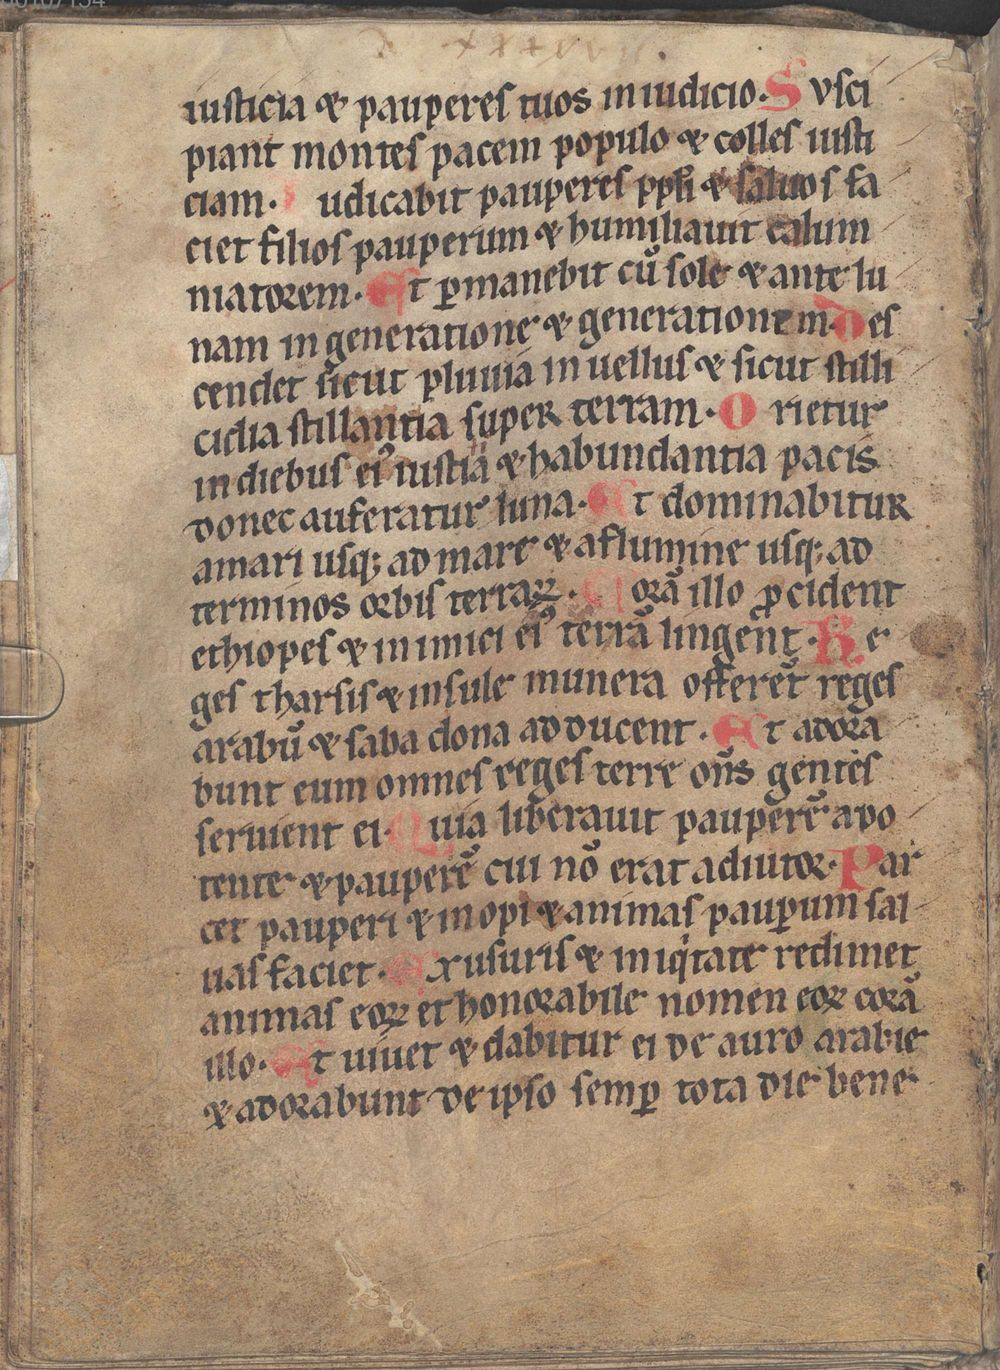 iusticia & pauperes tuos in iudicio. Susci
piant montes pacem populo & colles iusti
ciam. Iudicabit pauperes ppłi & saluos fa
ciet filios pauperum & humiliauit calum
niatorem. Et ꝑmanebit cū sole & ante lu
nam in generatione & generationem. Des
cendet sicut pluuia in uellus & sicut stilli
cidia stillantia super terram. Orietur
in diebus ei᷒ iusticia & habundantia pacis
donec auferatur luna. Et dominabitur
amari usqꝫ ad mare & aflumine usqꝫ ad
terminos orbis terraꝝ. Corā illo ꝓcident
ethiopes & inimici ei᷒ terrā lingent. Re
ges tharsis & insule munera offerēt reges
arabū & saba dona adducent. Et adora
bunt eum omnes reges terre om̄s gentes
seruient ei. Quia liberauit pauperē apo
tente & pauperē cui nō erat adiutor. Par
cet pauperi & inopi & animas pauꝑum sal
uas faciet. Ex usuris & iniqͥtate redimet
animas eoꝝ et honorabile nomen eoꝝ corā
illo. Et uiuet & dabitur ei de auro arabie
& adorabunt de ipso semꝑ tota die bene